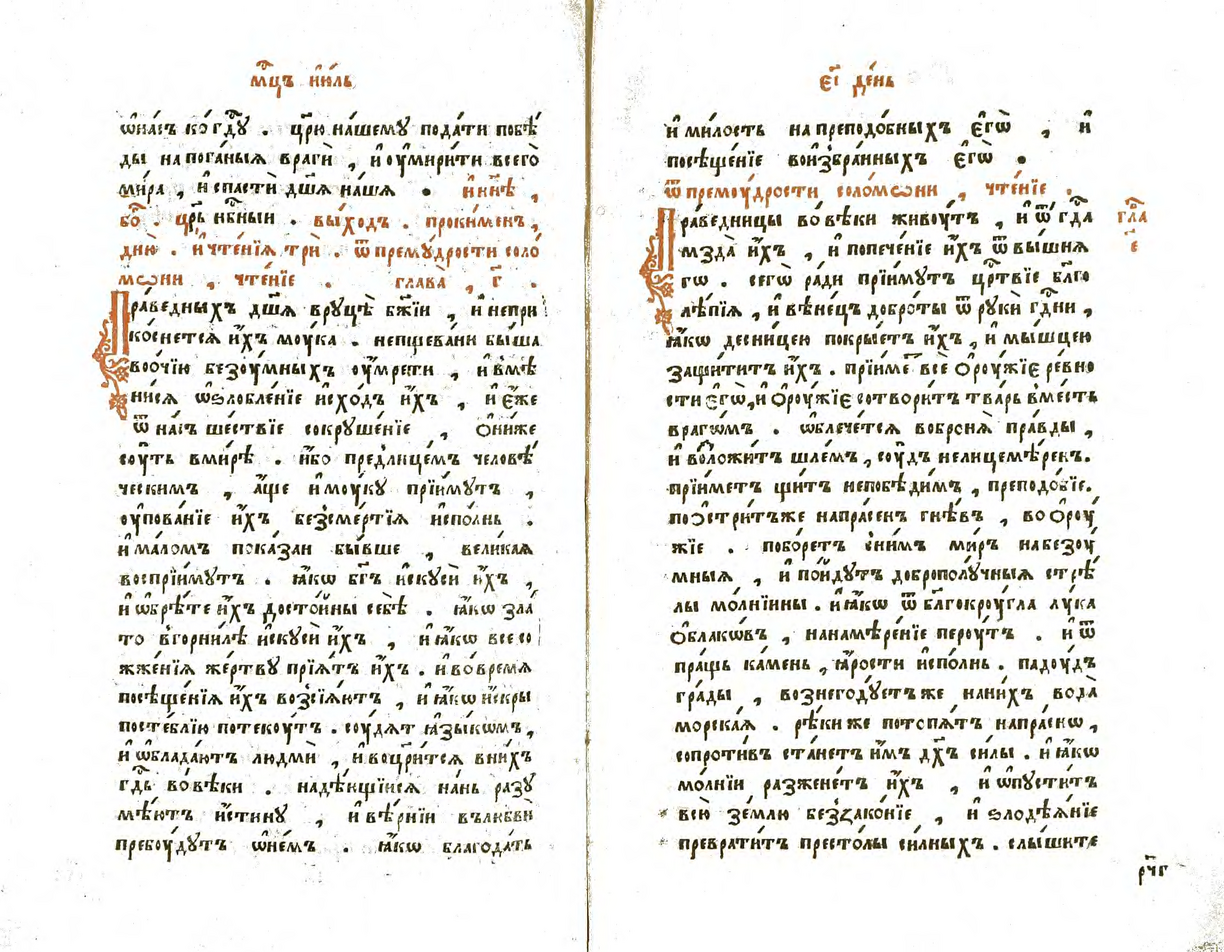 мⷭ҇цъ і҆ю́ль
ѡ҆на́съ ко гдⷭ҇ꙋ . цр҃ю на́шемꙋ пода́ти побѣ́
ды на пога́ныѧ враги̑ , и҆ ѹ҆мири́ти всего̀
ми́ра , и҆ спасти̑ дш҃ѧ на́шѧ . и҆ ны́нѣ ,
бо . цр҃ь нб҃ныи . вы́ходъ . проки́менъ ,
дню̀ . и҆ чте́нїѧ три̑ . ѿ премꙋ́дрости соло
мѡни , чте́нїе . глава̀ , г҃ .
Пра́ведныхъ дш҃ѧ врꙋцѣ̀ бж҃їи , и҆ непри
ко́снетсѧ и҆́хъ мѹ́ка . непщева́ни бы́ша
воо́чїю безѹ́мныхъ ѹ҆мре́ти , и҆ вмѣ
ни́сѧ ѡ҆ѕлобле́нїе и҆схо́дъ и҆́хъ , и҆ є҆́же
ѿ на́съ ше́ствїе сокрꙋше́нїе , Ѻ҆ни́же
сѹ́ть вми́рѣ . и҆́бо предлице́мъ человѣ́
ческимъ , а҆́ще и҆ мѹ́кꙋ прїи́мꙋтъ ,
ѹ҆пова́нїе и҆́хъ безсме́ртїѧ и҆спо́лнь .
и҆ ма́ломъ пока́зан бы́вше , вели́каѧ
воспрїи́мꙋтъ . ꙗ҆́кѡ бг҃ъ и҆скꙋсѝ и҆́хъ ,
и҆ ѡ҆брѣ́те и҆́хъ досто́йны себѣ̀ . ꙗ҆́кѡ зла́
то вгорни́лѣ и҆скꙋсѝ и҆́хъ , и҆ ꙗ҆́кѡ все со
жже́нїѧ же́ртвꙋ прїѧ́тъ и҆́хъ . и҆ во вре́мѧ
посѣще́нїѧ и҆́хъ возсїѧ́ютъ , и҆ ꙗ҆́кѡ и҆́скры
постеблїю потекѹ́тъ . сѹ́дѧт ꙗ҆зы́кѡмъ ,
и҆ ѡ҆блада́ютъ людмѝ , и҆ воцр҃и́тсѧ вни́хъ
гдⷭ҇ь во́ вѣки . надѣ́ющїисѧ на́нь разꙋ
мѣ́ютъ и҆́стинꙋ , и҆ вѣ́рнїи въ любвѝ
пребѹ́дꙋтъ ѡ҆не́мъ . ꙗ҆́кѡ благода́ть
є҃і де́нь
и҆ ми́лость на преподо́бныхъ є҆гѡ̀ , и҆
посѣще́нїе воизбра́нныхъ є҆гѡ̀ .
ѿ премѹ́дрости соломѡни , чте́нїе .
гла
є҃
Пра́ведницы во́ вѣки живѹ́тъ , и҆ ѿ гдⷭ҇а
мзда̀ и҆́хъ , и҆ попече́нїе и҆́хъ ѿ вы́шнѧ
гѡ . сегѡ̀ ра́ди прїи́мꙋтъ црⷭ҇твїе бл҃го
лѣ́пїѧ , и҆ вѣне́цъ добро́ты ѿ рꙋки̑ гдⷭ҇ни ,
ꙗ҆́кѡ десни́цею покры́етъ и҆́хъ , и҆ мы́шцею
защи́титъ и҆́хъ . прїи́ме все Ѻ҆рѹ́жїе ре́вно
сти є҆гѡ̀ , и҆ Ѻ҆рѹ́жїе сотвори́тъ тва́рь вме́сть
врагѡ́мъ . ѡ҆блече́тсѧ воброня̀ пра́вды ,
и҆ возложи́тъ шле́мъ , сѹ́дъ нелицемѣ́ренъ .
прїи́метъ щи́тъ непобѣди́мъ , преподо́бїе .
поѻстри́тъже напра́сенъ гнѣ́въ , во Ѻ҆рѹ́
жїе . побо́ретъ с̾ни́мъ ми́ръ на безѹ́
мныѧ , и҆ по́йдꙋтъ доброполꙋ́чныѧ стрѣ́
лы мо́лнїины . и҆ ꙗ҆́кѡ ѿ бл҃гокрѹ́гла лꙋ́ка
Ѻ҆́блакѡвъ , нанамѣ́ренїе перѹ́тъ . и҆ ѿ
пра́щь ка́мень , ꙗ҆́рости и҆спо́лнь . падѹ́дъ
гра́ды , вознегодꙋ́етъже нани́хъ вода̀
морска́ѧ . рѣ́киже пото́пѧтъ напра́снѡ ,
сопроти́въ ста́нетъ и҆́мъ дх҃ъ си́лы . и҆ ꙗ҆́кѡ
мо́лнїи разжене́тъ и҆́хъ , и҆ ѡ҆пꙋсти́тъ
всю̀ зе́млю беззако́нїе , и҆ ѕлодѣѧ́нїе
преврати́тъ престо́лы си́лныхъ . слы́шите
рч҃г